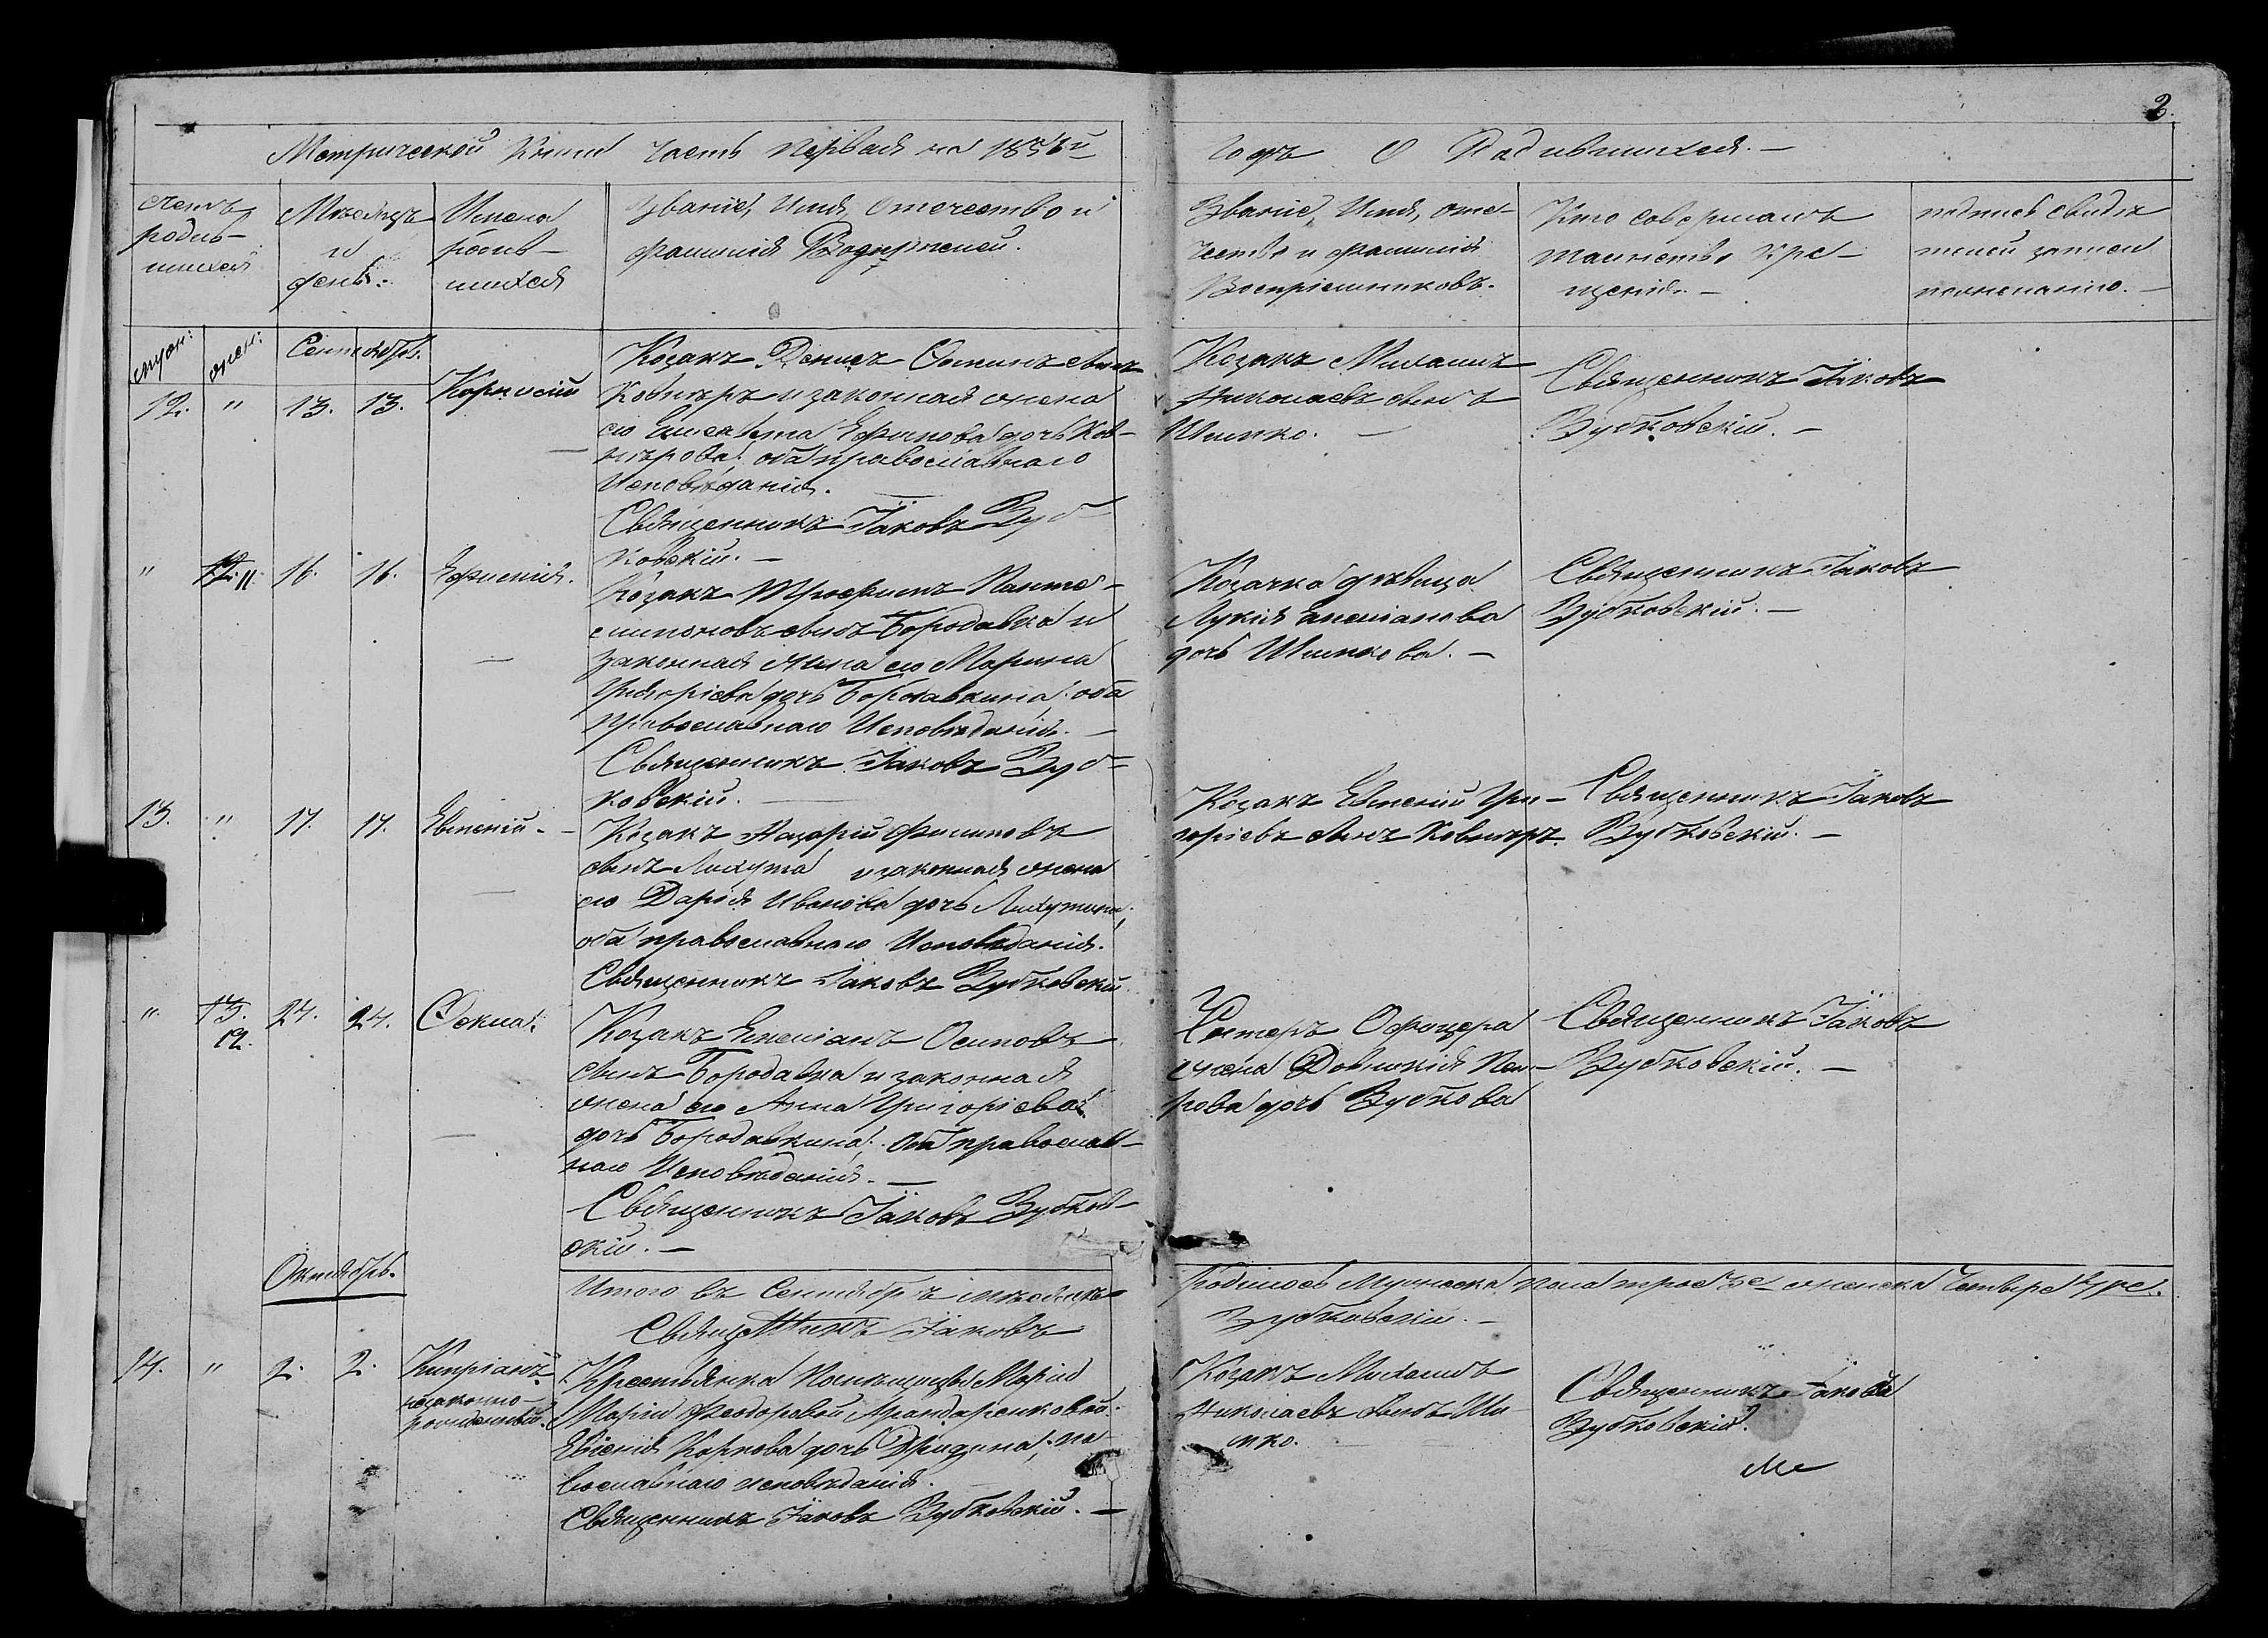 2.
Метрической Книги Часть Первая на 185
Годъ О Родившихся. —
Счетъ
родив-
шихся
Мѣсяцъ
и
день.
Имена
родив-
шихся
Званіе, Имя, Отечество и
фамилія Родителей.
Званіе, Имя, оте-
чество и фамилія
Воспріемниковъ.
Кто совершалъ
таинство Кре-
щенія. —
подпись свидѣ
телей записи
по желанію. —
муж: жен: Сентябрь.
12. " 13. 13. Корнилій
Козакъ Денисъ сынъ
Ковнѣръ и законная жена
его Елисавета Ефимова дочь Ков-
нѣрова: оба православнаго
Исповѣданія.
Священникъ Іаковъ Зуб
ковскій. —
Козакъ Михаилъ
Николаевъ сынъ
Шимко. —
Священникъ Іаковъ
Зубковскій. —
" 12. 11. 16. 16. Ефимія.
Козакъ Трофимъ Панте-
лимоновъ сынъ Бородавка и
законная жена его Марина
Григоріева дочь Бородавкина: оба
Православнаго Исповѣданія. —
Священникъ Іаковъ Зуб=
ковскій. —
Козачка дѣвица
Лукія Емеліанова
дочь Шимкова. —
Священникъ Іаковъ
Зубковскій. —
13. " 17. 17. Евмений. —
Козакъ Назарій Филиповъ
сынъ Лихута и законная жена
его Дарія Иванова дочь Лихутина;
оба православнаго Исповѣданія.
Священникъ Іаковъ Зубковскій
Козакъ Евмений Гри-
горіевъ сынъ Ковнѣръ.
Священникъ Іаковъ
Зубковскій. —
" 13. 12. 24. 24. Фекла.
Козакъ Емеліанъ Осиповъ
сынъ Бородавка и законная
жена его Анна Григоріева
дочь Бородавкина: Оба православ-
наго Исповѣданія. —
Священникъ Іаковъ Зубков-
скій. —
Офицера
жена Домникія
рова дочь Зубкова
Священникъ Іаковъ
Зубковскій. —
Октябрь.
Итого въ Сентябрѣ мѣсяцѣ
Родилось Мужеска пола трое женска Четыре
Священникъ Іаковъ
Зубковскій. —
14. " 2. 2. Кипріанъ
незаконно-
рожденный.
Крестьянка Помѣщицы Маріи
Маріи Феодоровой
Евгенія Карпова дочь
вославнаго исповѣданія.
Священникъ Іаковъ Зубковскій. —
Козакъ Михаилъ
Николаевъ сынъ Ши
мко.
Священникъ Іаковъ
Зубковскій.